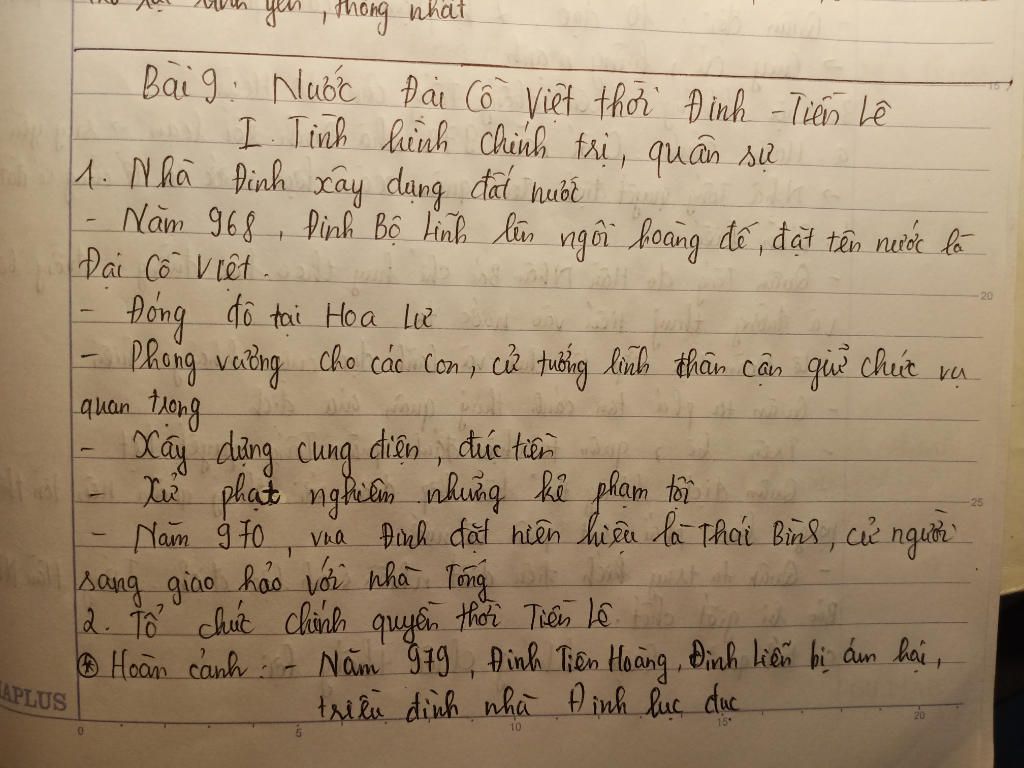 yên, thống nhất
Bài 9: Nước Đại Cồ Việt thời Đinh - Tiền Lê
I. Tình hình chính trị, quân sự
1. Nhà Đinh xây dựng đất nước
- Năm 968, Đinh Bộ Lĩnh lên ngôi hoàng đế, đặt tên nước là
Đại Cồ Việt.
- Đóng đô tại Hoa Lư
- Phong vương cho các con, cử tướng lĩnh thân cận giữ chức vụ
quan trọng
- Xây dựng cung điện, đúc tiền
- Xử phạt nghiêm những kẻ phạm tội
- Năm 970, vua Đinh đặt niên hiệu là Thái Bình, cử người
sang giao hảo với nhà Tống
2. Tổ chức chính quyền thời Tiền Lê
* Hoàn cảnh: - Năm 979, Đinh Tiên Hoàng, Đinh Liễn bị ám hại,
triều đình nhà Đinh lục đục
APLUS
15
20
25
0 5 10 15 20